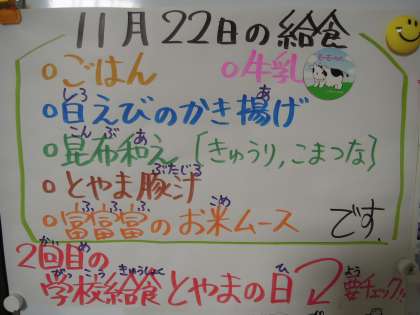 11月22日の給食
○ごはん ○牛乳
○白えびのかき揚げ
○昆布和え〔きゅうり,こまつな〕
○とやま豚汁
○富富富のお米ムース です。
2回目の
学校給食とやまの日 要チェック!!